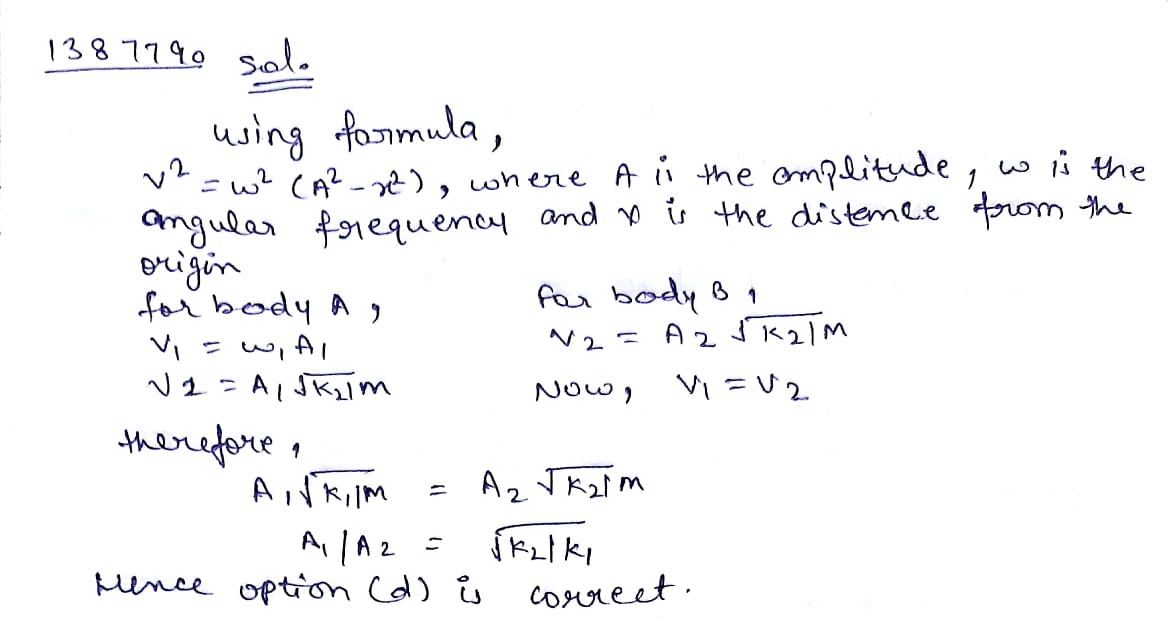 1387790 sol.
using formula,
v² = w² (A² - x²), where A is the amplitude, w is the
angular frequency and x is the distance from the
origin
for body A,
V₁ = w₁A₁
V₁ = A₁√K₁/m
for body B,
V₂ = A₂ √K₂/M
Now, V₁ = V₂
therefore,
A₁√K₁/M = A₂ √K₂/m
A₁/A₂ = √K₂/K₁
Hence option (d) is correct.